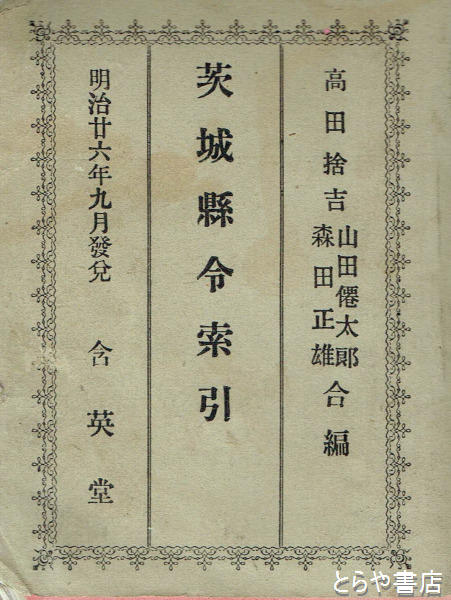 高田捨吉 山田僊太郎 森田正雄 合編
茨城縣令索引
明治廿六年九月發兌 含英堂
とらや書店